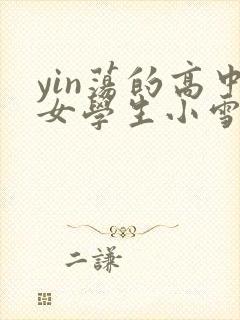 yin蕩的高中
女學生小雪
二謙